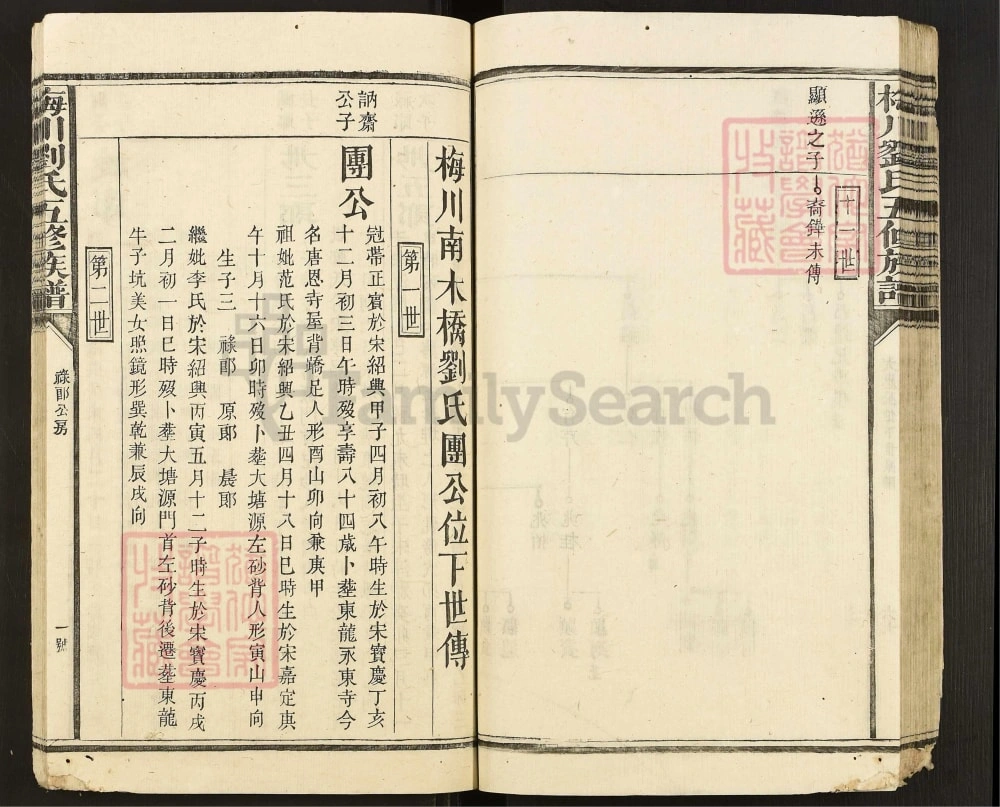 梅川劉氏五修族譜
十一世
顯遜之子
裔鋒未傳
梅川南木橋劉氏團公位下世傳
第一世
訥齋
公子
團公
冠帶正賓於宋紹興甲子四月初八午時生於宋寶慶丁亥
十二月初三日午時歿享壽八十四歲卜塟東龍永東寺今
名唐恩寺屋背嶠足人形酉山卯向兼庚甲
祖妣范氏於宋紹興乙丑四月十八日巳時生於宋嘉定庚
午十月十六日卯時歿卜塟大塘源左砂背人形寅山申向
生子三 祿郎 原郎 晨郎
繼妣李氏於宋紹興丙寅五月十二子時生於宋寶慶丙戌
二月初一日巳時歿卜塟大塘源門首左砂背後遷塟東龍
牛子坑美女照鏡形巽乾兼辰戌向
第二世
梅川劉氏五修族譜
祿郎公房
一號
FamilySearch